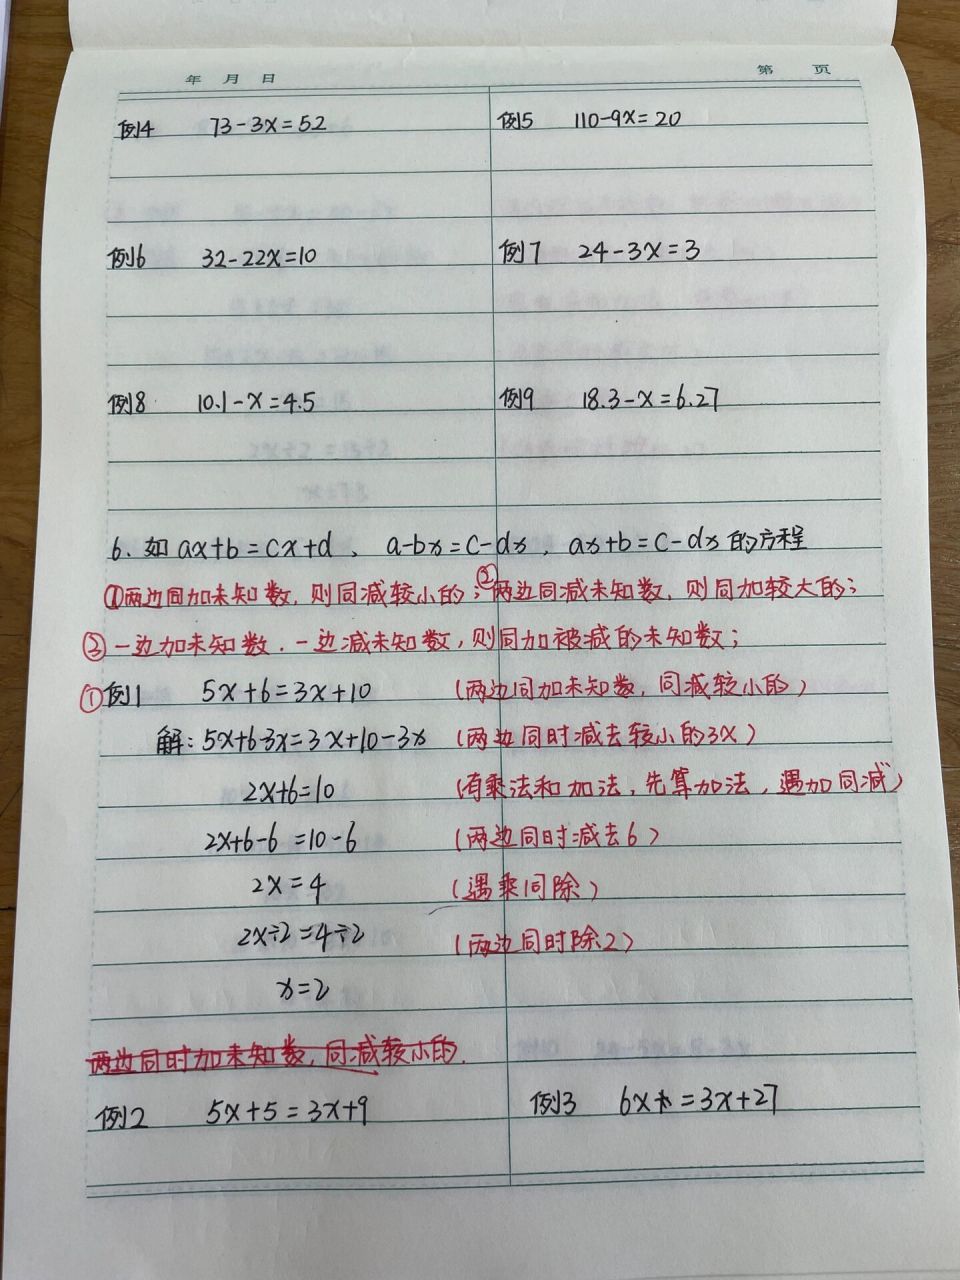 年 月 日 第 页
例4 73-3x=52 例5 110-9x=20
例6 32-22x=10 例7 24-3x=3
例8 10.1-x=4.5 例9 18.3-x=6.27
6、如ax+b=cx+d、a-bx=c-dx、ax+b=c-dx的方程
①两边同加未知数,则同减较小的;②两边同减未知数,则同加较大的;
③一边加未知数,一边减未知数,则同加被减的未知数;
①例1 5x+6=3x+10 (两边同加未知数,同减较小的)
解:5x+6-3x=3x+10-3x (两边同时减去较小的3x)
2x+6=10 (有乘法和加法,先算加法,遇加同减)
2x+6-6=10-6 (两边同时减去6)
2x=4 (遇乘同除)
2x÷2=4÷2 (两边同时除2)
x=2
两边同时加未知数,同减较小的.
例2 5x+5=3x+9 例3 6x+ =3x+27